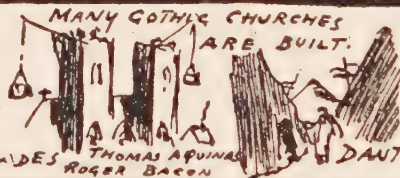 MANY GOTHIC CHURCHES
ARE BUILT.
THOMAS AQUINAS
ROGER BACON